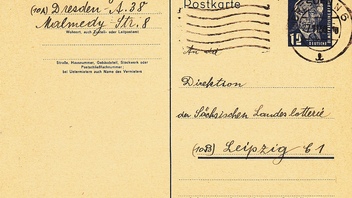 (10a) Dresden - A. 38
Malmedy Str. 8
Wohnort, auch Zustell- oder Leitpostamt
Straße, Hausnummer, Gebäudeteil, Stockwerk oder
Postschließfachnummer;
bei Untermietern auch Name des Vermieters
Postkarte
12
An die
Direktion
der Sächsischen Landeslotterie
(10B) Leipzig C 1